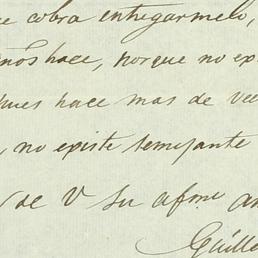 cobra entregarmelo,
hace, porque no ex
pues hace mas de vei
, no existe semejante
de V Su afmo a
Guille